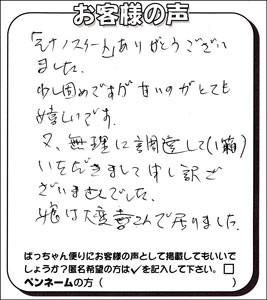 お客様の声
「シナノスイート」ありがとうござい
ました。
少し固めですが甘いのがとても
嬉しいです。
又、無理に調達して(1箱)
いただきまして申し訳ご
ざいませんでした。
娘は大変喜んで居りました。
ばっちゃん便りにお客様の声として掲載してもいいで
しょうか？匿名希望の方は✓を記入して下さい。□
ペンネームの方（　　　　　　　　　　）